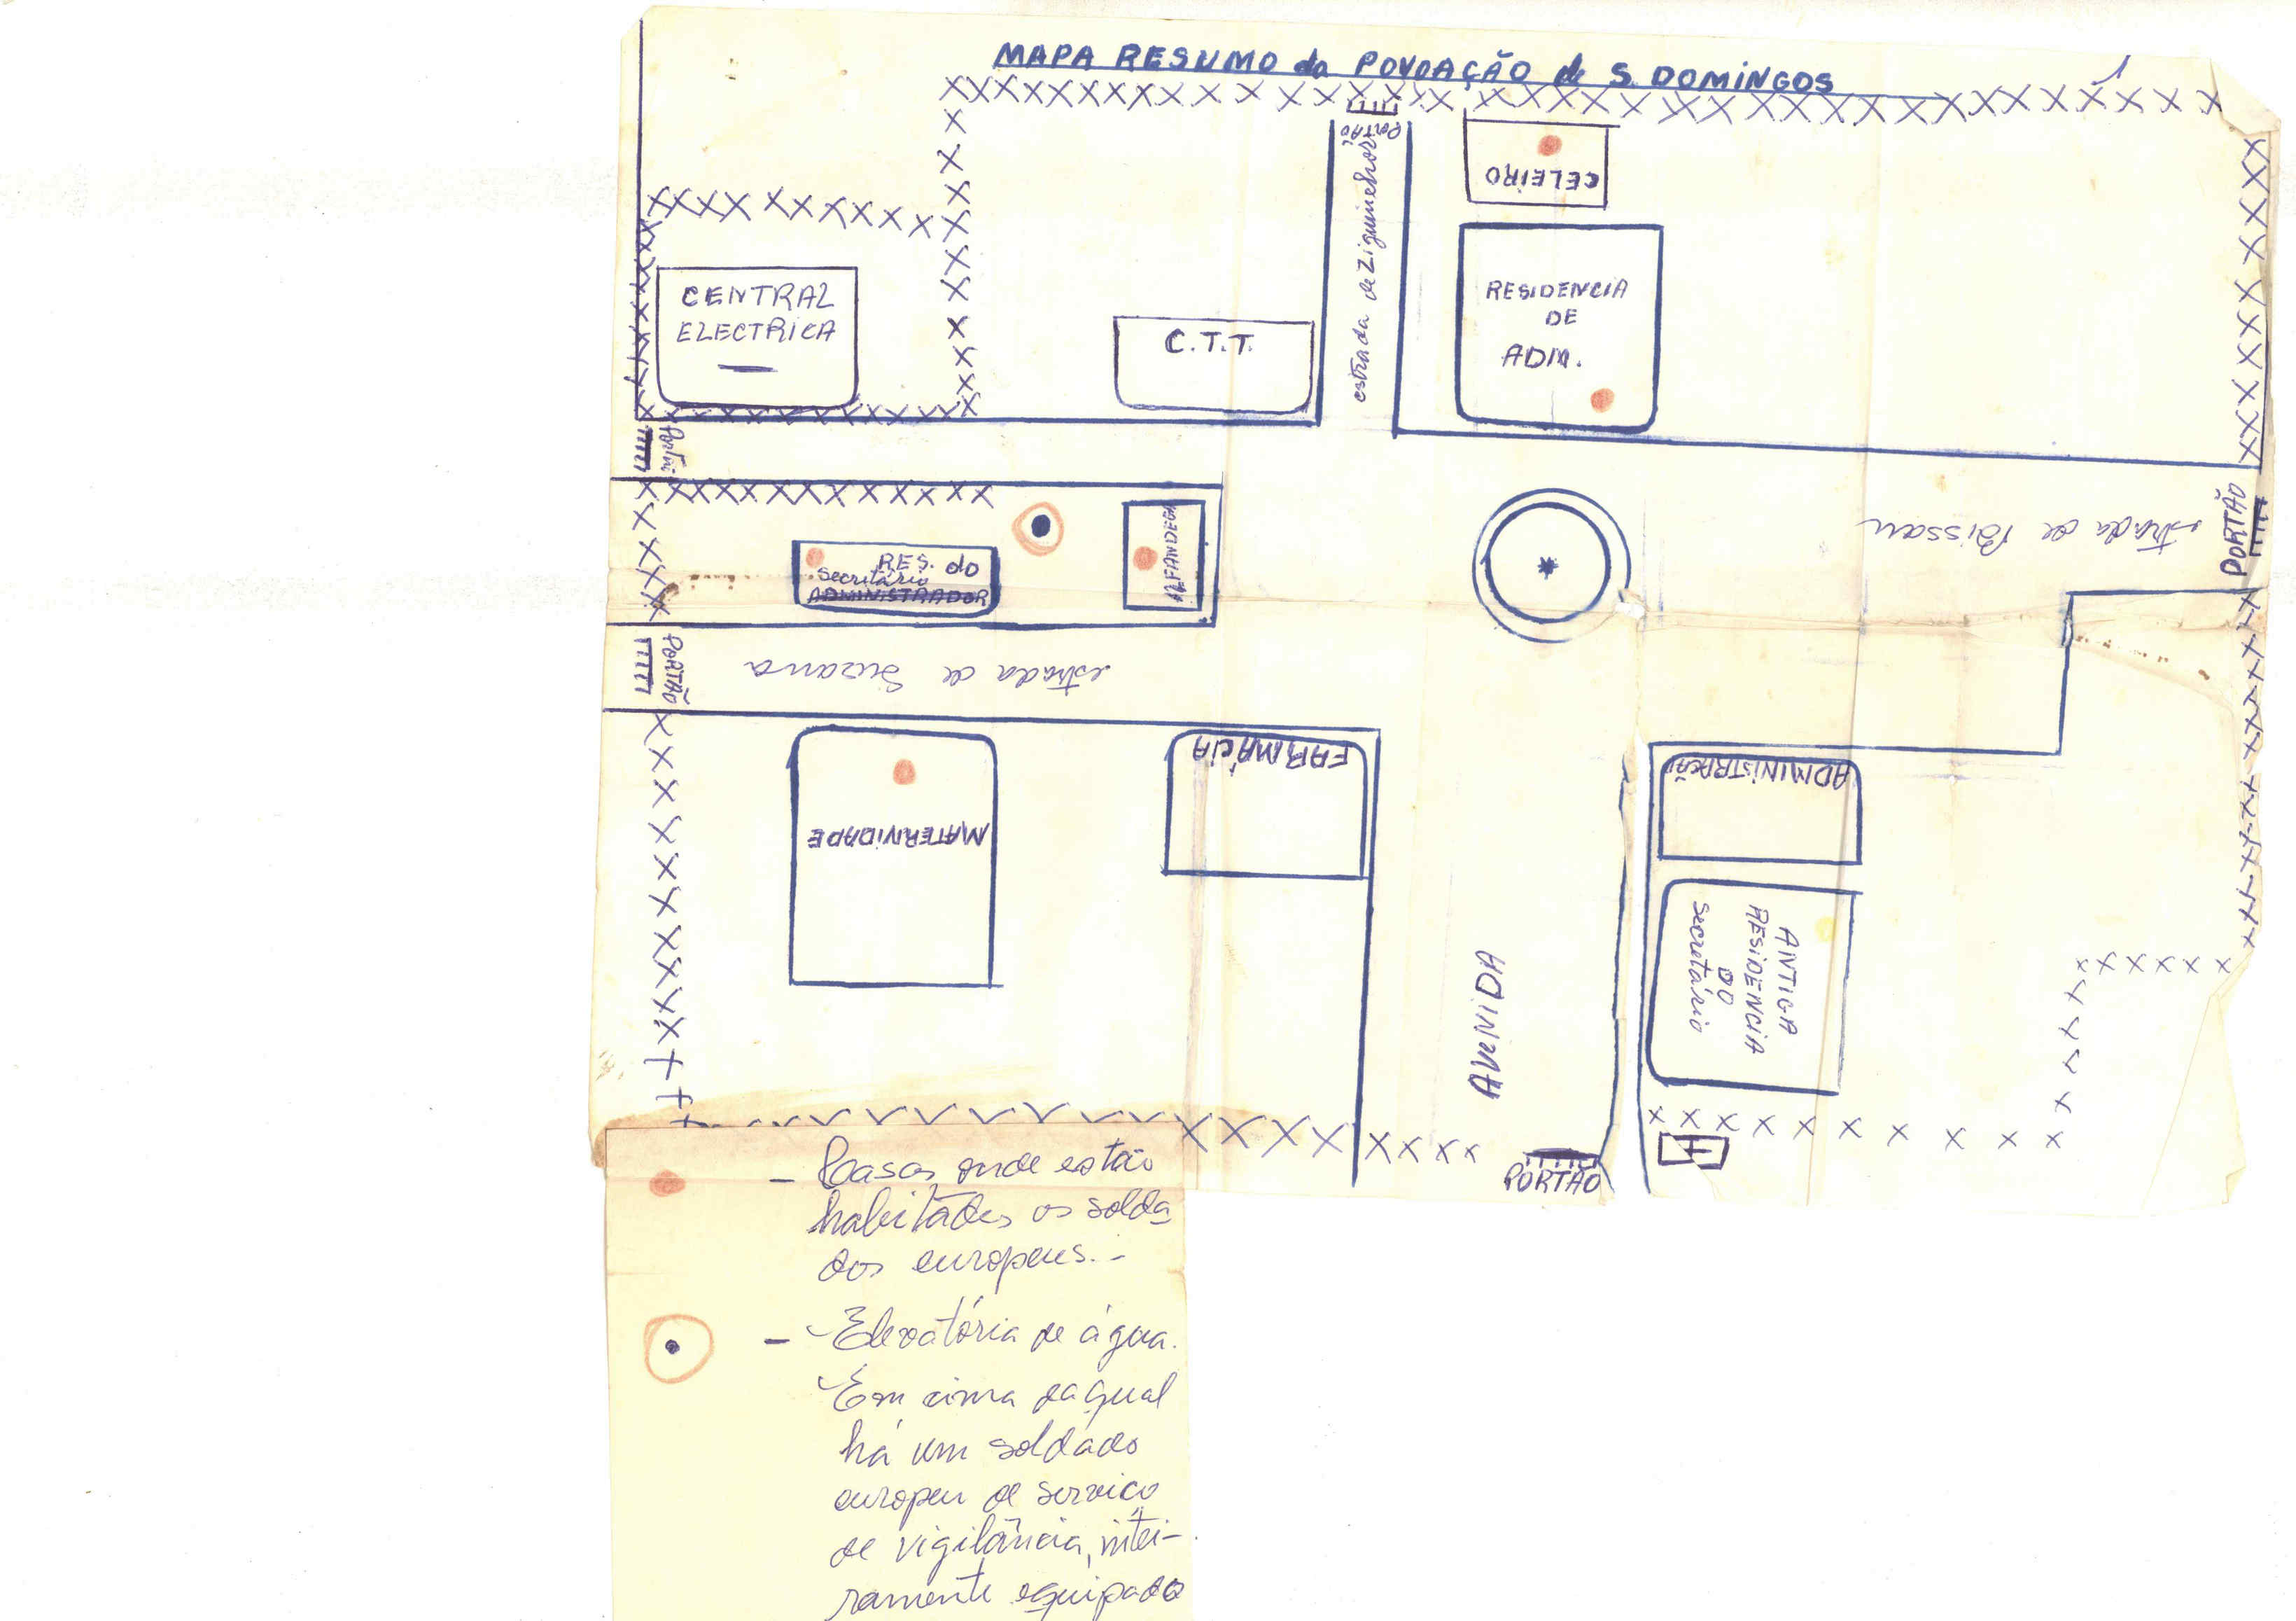 MAPA RESUMO da POVOAÇÃO de S. DOMINGOS
1
PORTÃO
estrada de Ziguinchor
CELEIRO
CENTRAL
ELECTRICA
C.T.T.
RESIDENCIA
DE
ADM.
Portão
RES. do
Secretário
ADMINISTRADOR
ALFANDEGA
estrada de Bissau
PORTÃO
PORTÃO
estrada de Suzana
MATERNIDADE
FARMÁCIA
ADMINISTRAÇÃO
ANTIGA
RESIDENCIA
DO
Secretário
AVENIDA
PORTÃO
- Casas onde estão
habitados os solda
dos europeus.-
- Elevatória de água.
Em cima da qual
há um soldado
europeu de serviço
de vigilância, intei-
ramente equipado